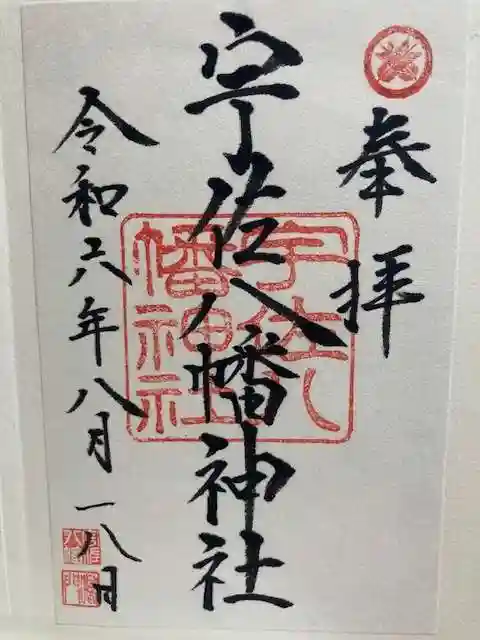 奉拝
宇佐八幡神社
宇佐八
幡神社
令和六年八月一八日